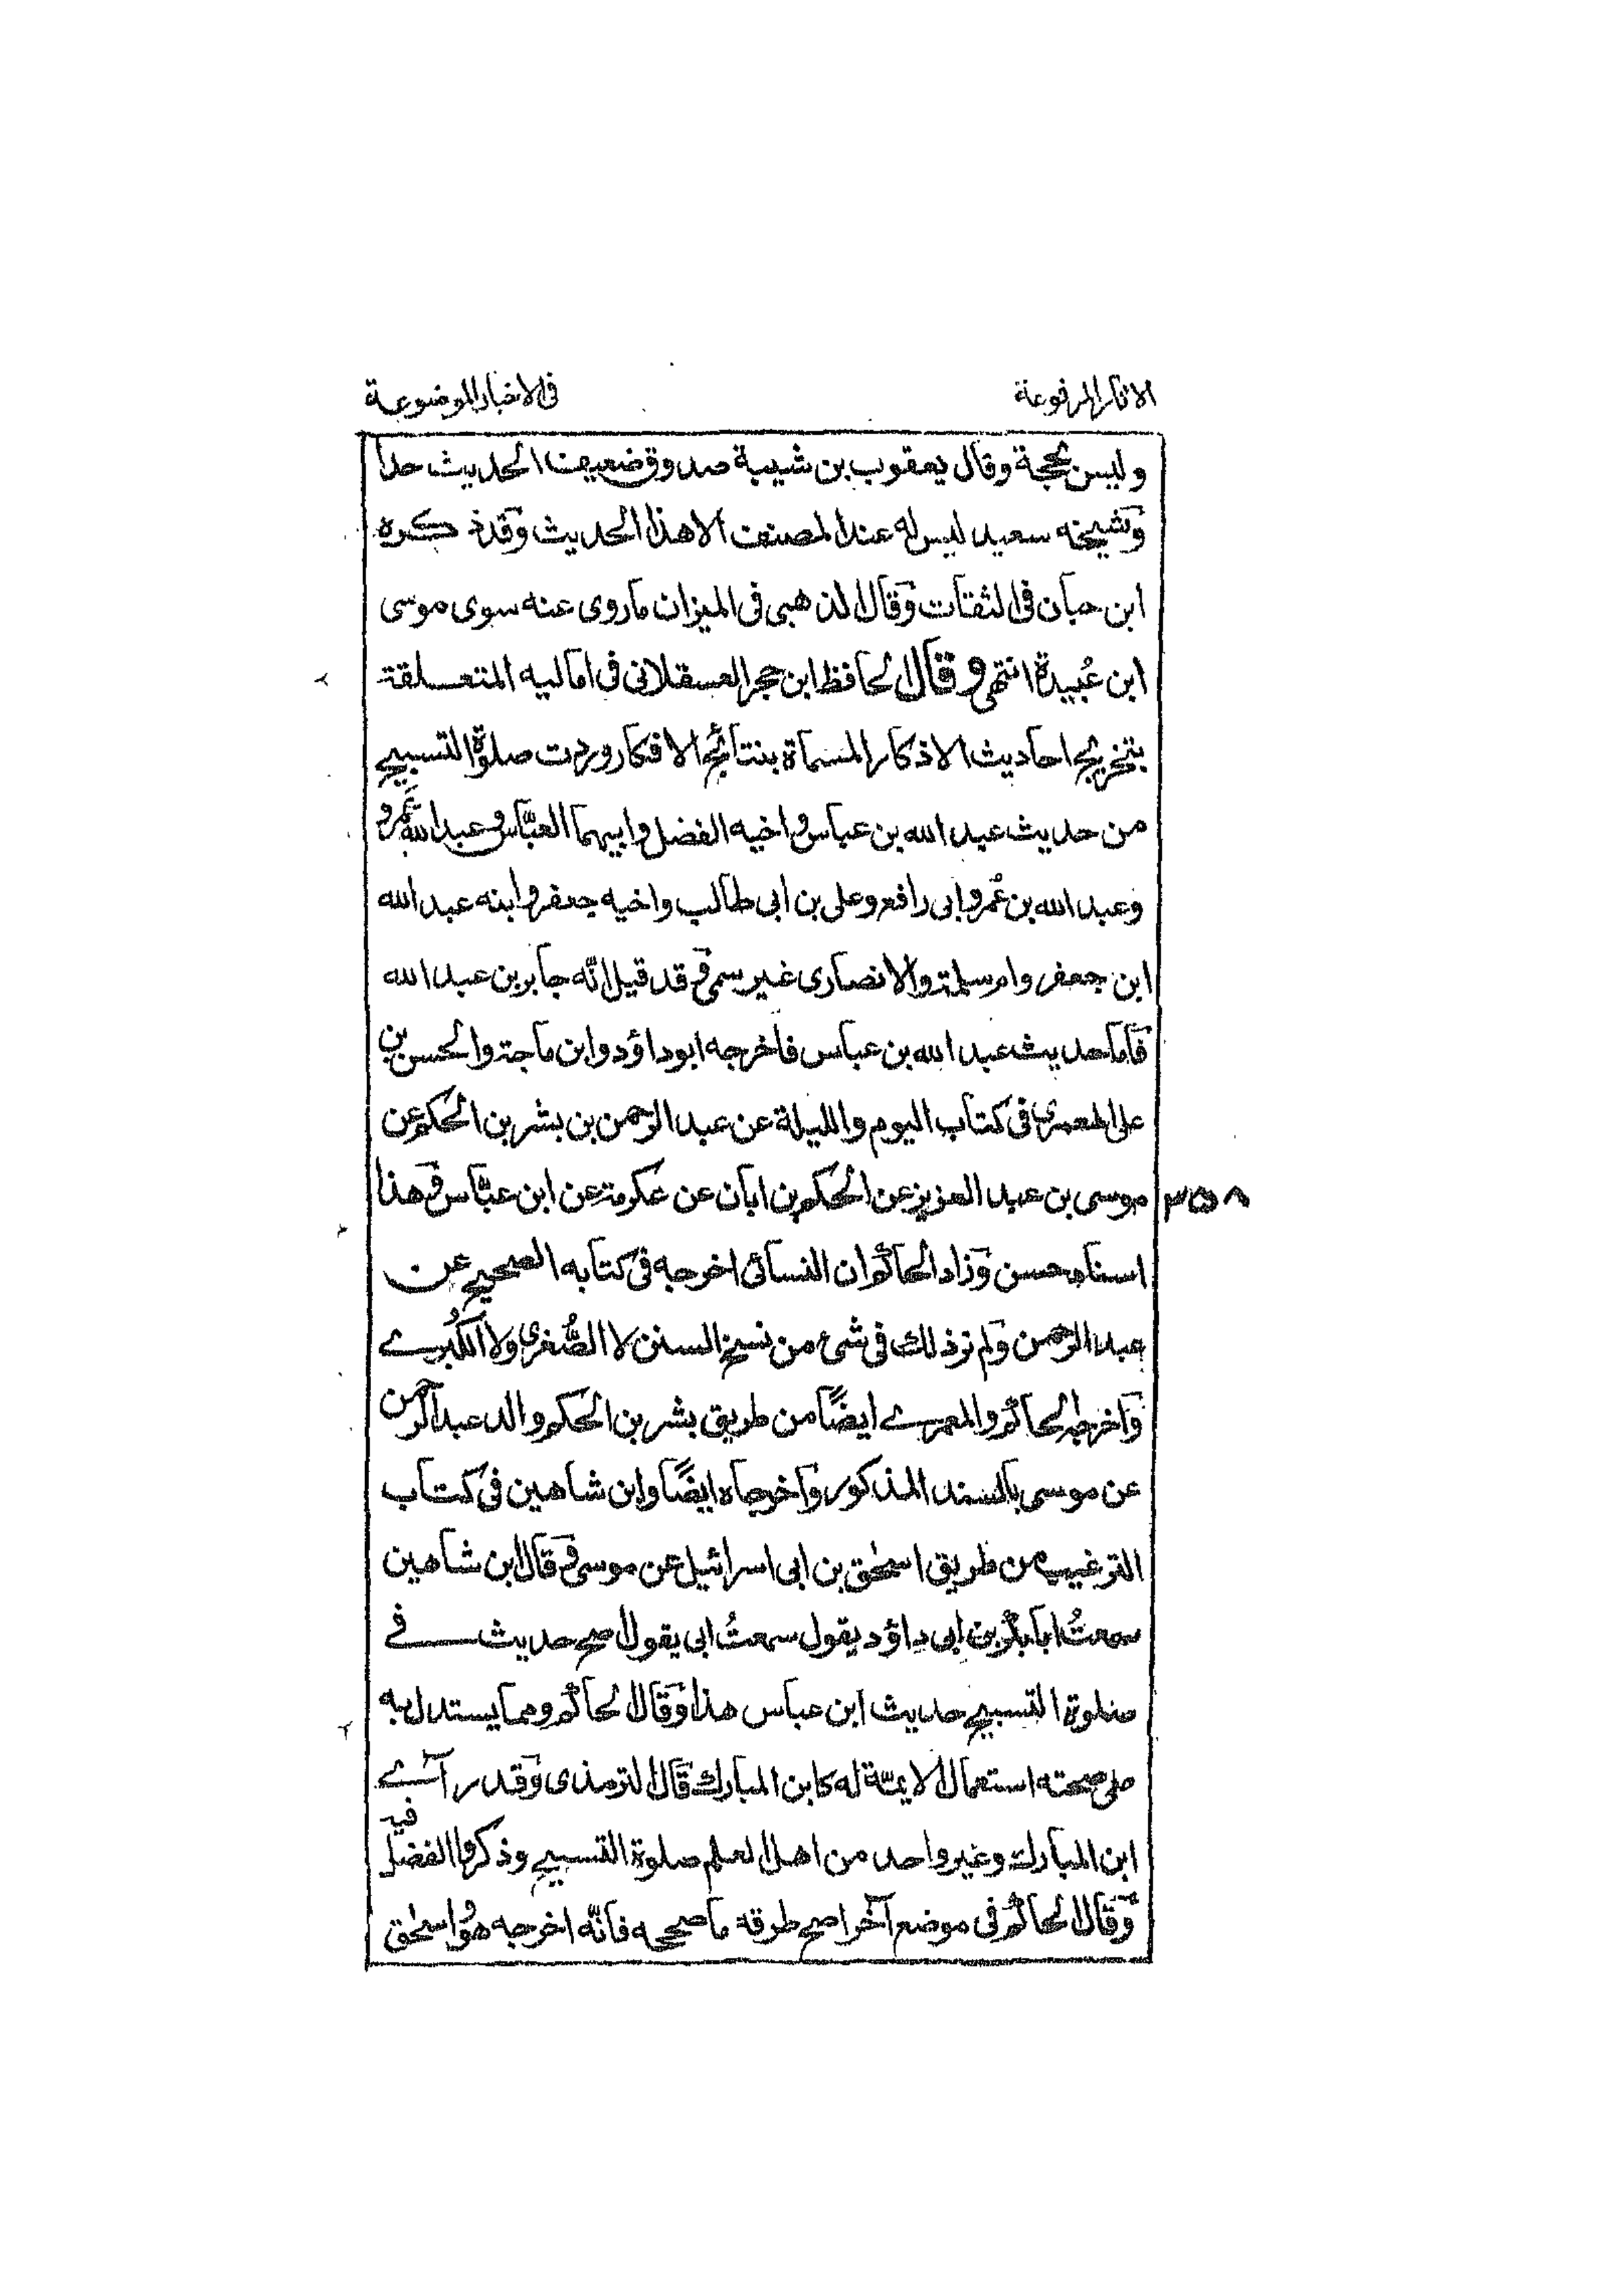 الاثار المرفوعة
فى الاخبار الموضوعة
وليس بحجة وقال يعقوب بن شيبة صدوق ضعيف الحديث جدا
وشيخه سعيد ليس له عند المصنف الا هذا الحديث وقد ذكره
ابن حبان فى الثقات وقال الذهبى فى الميزان ماروى عنه سوى موسى
ابن عُبيدة انتهى وقال الحافظ ابن حجر العسقلانى فى اماليه المتعلقة
بتخريج احاديث الاذكار المسماة بنتائج الافكار وردت صلوة التسبيح
من حديث عبد الله بن عباس واخيه الفضل وابيهما العبّاس وعبد الله بن عَمرو
وعبد الله بن عُمر وابى رافع وعلى بن ابى طالب واخيه جعفر وابنه عبد الله
ابن جعفر وام سلمة والانصارى غير سمى وقد قيل انّه جابر بن عبد الله
فاما حديث عبد الله بن عباس فاخرجه ابوداؤد وابن ماجة والحسن بن
على المعمرى فى كتاب اليوم والليلة عن عبد الرحمن بن بشر بن الحكم عن
موسى بن عبد العزيز عن الحكم بن ابان عن عكرمة عن ابن عبّاس وهذا
٣٥٨
اسناد حسن وزاد الحاكم ان النسائى اخرجه فى كتابه الصحيح عن
عبد الرحمن ولم نرذلك فى شئ من نسخ السنن لا الصُّغرى ولا الكُبرے
واخرجه الحاكم والمعمرے ايضًا من طريق بشر بن الحكم والد عبد الرحمن
عن موسى بالسند المذكور واخرجاه ايضًا وابن شاهين فى كتاب
الترغيب من طريق اسحٰق بن ابى اسرائيل عن موسى وقال ابن شاهين
سمعتُ ابا بكر بن ابى داؤد يقول سمعتُ ابى يقول اصح حديث فے
صلوة التسبيح حديث ابن عباس هذا وقال الحاكم ومما يستدل به
على صحته استعمال الايمّة له كابن المبارك قال الترمذى وقد رآے
ابن المبارك وغير واحد من اهل العلم صلوة التسبيح وذكروا الفضل فيه
وقال الحاكم فى موضع آخر اصح طرقه ما صححه فانّه اخرجه هو واسحٰق